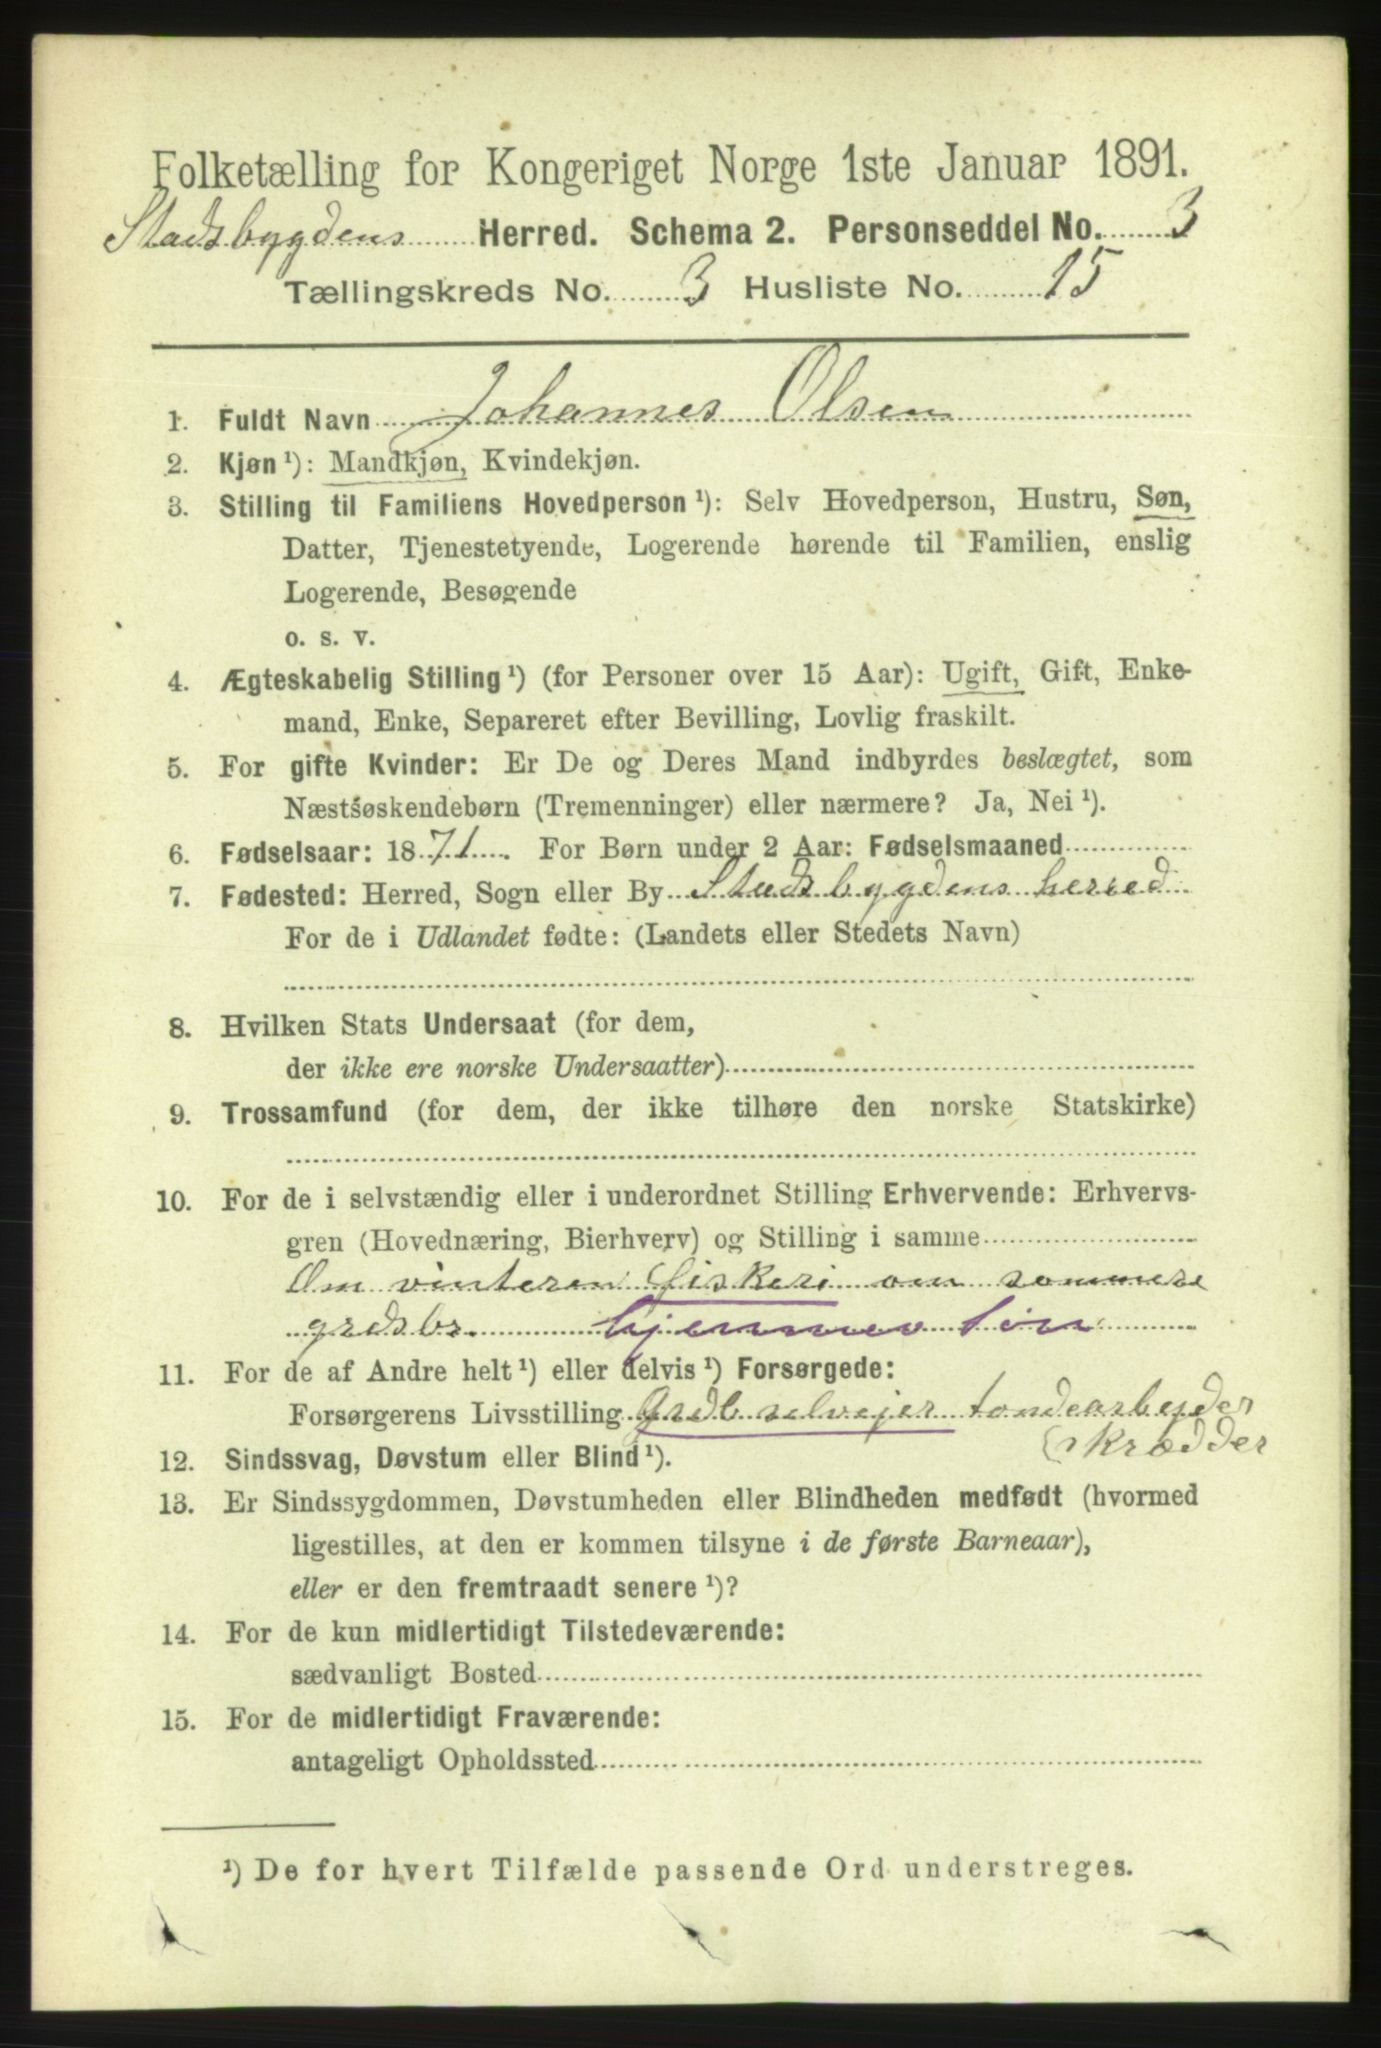 Folketælling for Kongeriget Norge 1ste Januar 1891.
Stadsbygdens Herred. Schema 2. Personseddel No. 3
Tællingskreds No. 3 Husliste No. 15
1. Fuldt Navn Johannes Olsen
2. Kjøn¹): Mandkjøn, Kvindekjøn.
3. Stilling til Familiens Hovedperson¹): Selv Hovedperson, Hustru, Søn,
Datter, Tjenestetyende, Logerende hørende til Familien, enslig
Logerende, Besøgende
o. s. v.
4. Ægteskabelig Stilling¹) (for Personer over 15 Aar): Ugift, Gift, Enke-
mand, Enke, Separeret efter Bevilling, Lovlig fraskilt.
5. For gifte Kvinder: Er De og Deres Mand indbyrdes beslægtet, som
Næstsøskendebørn (Tremenninger) eller nærmere? Ja, Nei¹).
6. Fødselsaar: 1871. For Børn under 2 Aar: Fødselsmaaned
7. Fødested: Herred, Sogn eller By Stadsbygdens herred
For de i Udlandet fødte: (Landets eller Stedets Navn)
8. Hvilken Stats Undersaat (for dem,
der ikke ere norske Undersaatter)
9. Trossamfund (for dem, der ikke tilhøre den norske Statskirke)
10. For de i selvstændig eller i underordnet Stilling Erhvervende: Erhvervs-
gren (Hovednæring, Bierhverv) og Stilling i samme
Om vinteren fiskeri om sommere
grdsbr. hjemmev søn
11. For de af Andre helt¹) eller delvis¹) Forsørgede:
Forsørgerens Livsstilling Grdb selvejer tøndearbejder
(skrædder
12. Sindssvag, Døvstum eller Blind¹).
13. Er Sindssygdommen, Døvstumheden eller Blindheden medfødt (hvormed
ligestilles, at den er kommen tilsyne i de første Barneaar),
eller er den fremtraadt senere¹)?
14. For de kun midlertidigt Tilstedeværende:
sædvanligt Bosted
15. For de midlertidigt Fraværende:
antageligt Opholdssted
¹) De for hvert Tilfælde passende Ord understreges.